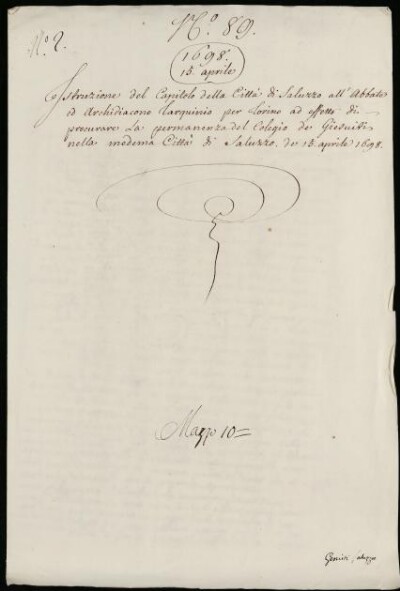 N.º 89.
N.º 2.
1698.
13. aprile
Istruzione del Capitolo della Città di Saluzzo all'Abbate
ed Archidiacono Tarquinio per Torino ad effetto di
procurare la permanenza del Colegio de Giesuiti
nella medema Città di Saluzzo. de 13. aprile 1698.
Mazzo 10=
Gesuiti, Saluzzo